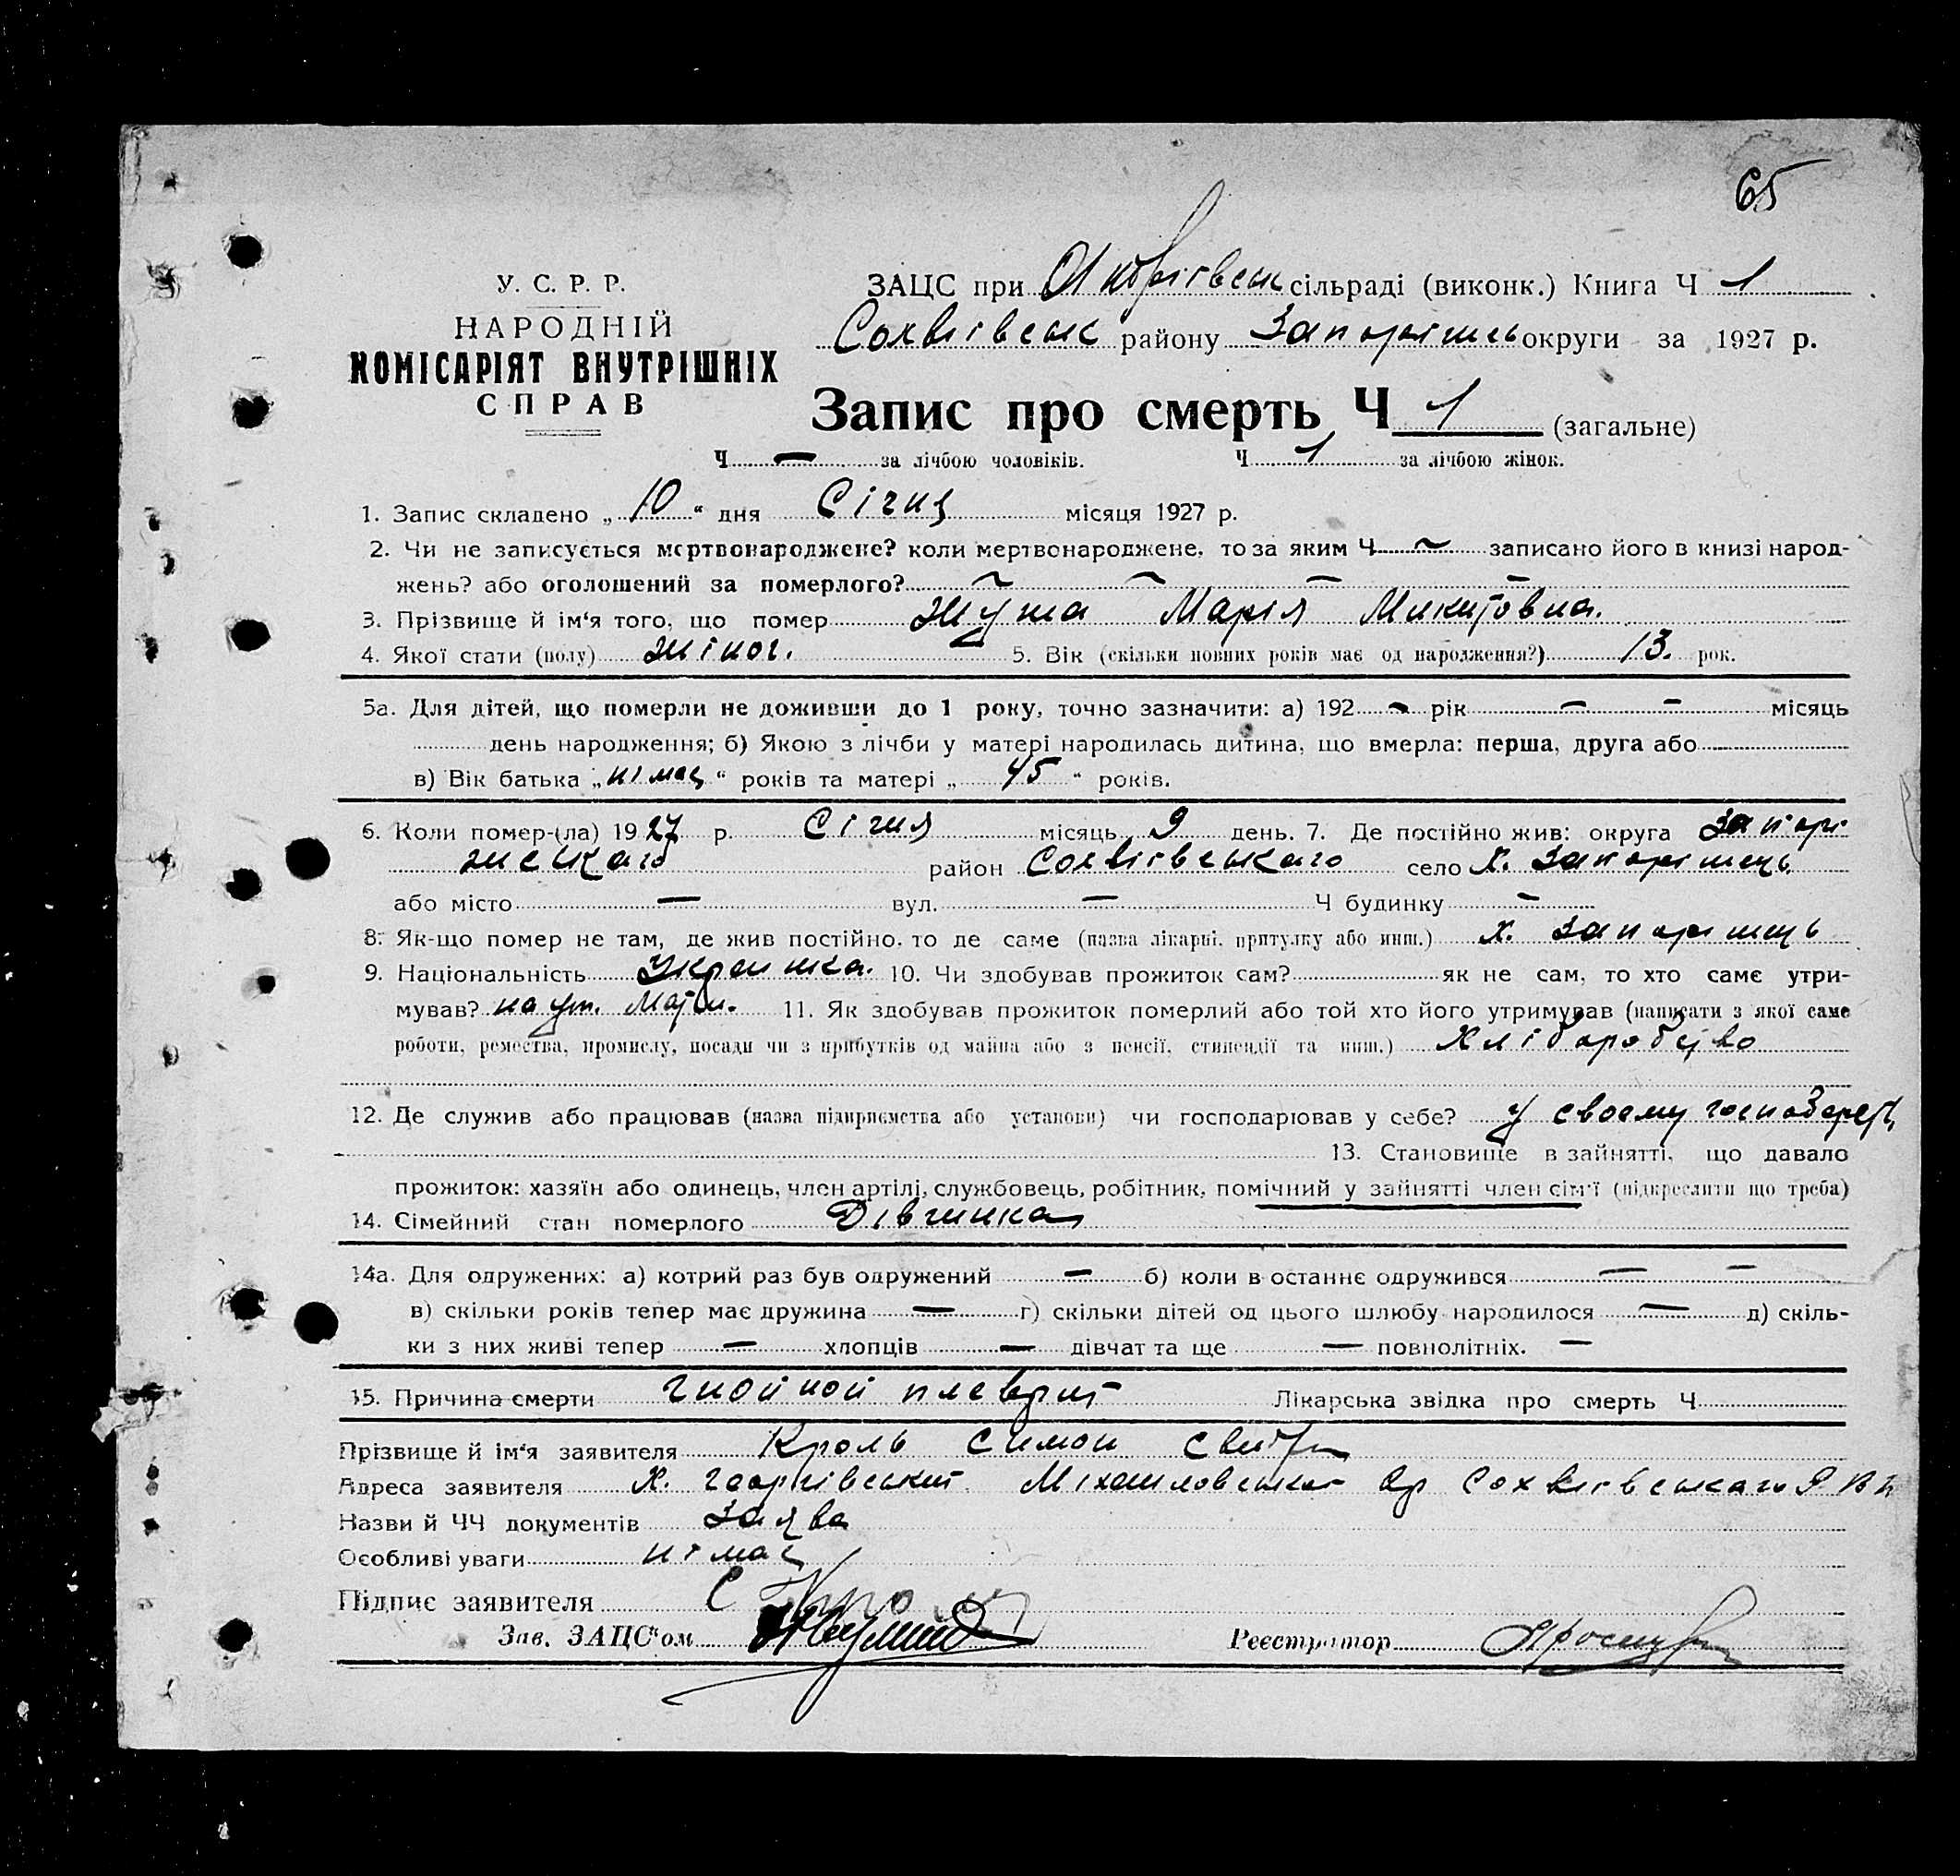 65
У. С. Р. Р.
НАРОДНІЙ
КОМІСАРІЯТ ВНУТРІШНІХ
СПРАВ
ЗАЦС при сільраді (виконк.) Книга Ч 1
району округи за 1927 р.
Запис про смерть Ч 1 (загальне)
Ч — за лічбою чоловіків. Ч 1 за лічбою жінок.
1. Запис складено „ 10 “ дня Січня місяця 1927 р.
2. Чи не записується мертвонароджене? коли мертвонароджене, то за яким Ч ~ записано його в книзі народ-
жень? або оголошений за померлого? ~ — — —
3. Прізвище й ім‘я того, що помер Марія Микитовна.
4. Якої стати (полу) жіноч. 5. Вік (скільки повних років має од народження?) 13. рок.
5а. Для дітей, що померли не доживши до 1 року, точно зазначити: а) 192 - рік — — місяць
день народження; б) Якою з лічби у матері народилась дитина, що вмерла: перша, друга або
в) Вік батька „ німає “ років та матері „ 45 “ років.
6. Коли помер-(ла) 1927 р. Січня місяць 9 день. 7. Де постійно жив: округа Запорі
жського район село х. Запоріжець
або місто — вул. — Ч будинку —
8. Як-що помер не там, де жив постійно, то де саме (назва лікарні, притулку або инш.) х. Запоріжець
9. Національність Українка. 10. Чи здобував прожиток сам? як не сам, то хто саме утри-
мував? на ут. Маты. 11. Як здобував прожиток померлий або той хто його утримував (написати з якої саме
роботи, ремества, промислу, посади чи з прибутків од майна або з пенсії, стипендії та инш.) Хліборобство
12. Де служив або працював (назва підприємства або установи) чи господарював у себе? У своему
13. Становище в зайнятті, що давало
прожиток: хазяїн або одинець, член артілі, службовець, робітник, помічний у зайнятті член сім‘ї (підкреслити що треба)
14. Сімейний стан померлого Дівчинка
14а. Для одружених: а) котрий раз був одружений — б) коли в останнє одружився — —
в) скільки років тепер має дружина — г) скільки дітей од цього шлюбу народилося — д) скіль-
ки з них живі тепер — хлопців — дівчат та ще — повнолітніх. —
15. Причина смерти гнойной плеврит Лікарська звідка про смерть Ч
Прізвище й ім‘я заявителя Кроль Симон
Адреса заявителя х. Георгівський
Назви й ЧЧ документів Заява
Особливі уваги німає
Підпис заявителя С Кроль
Зав. ЗАЦС“ом Реєстратор